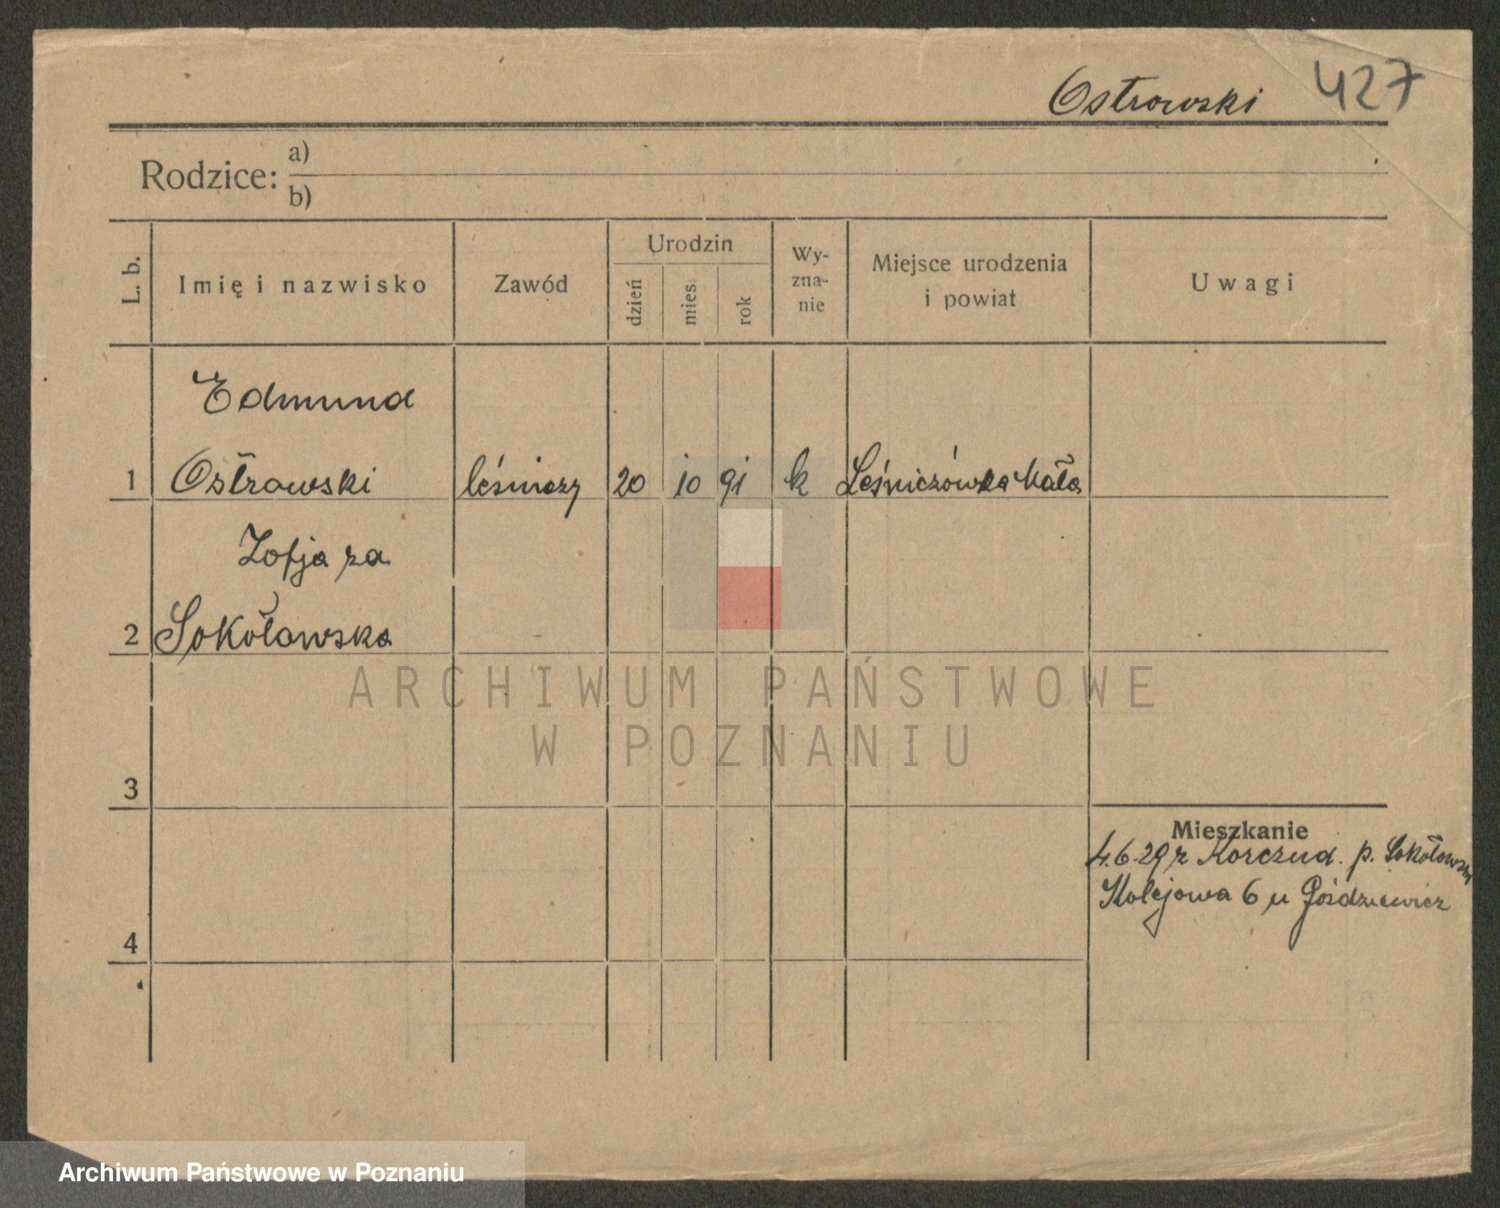 Ostrowski 427
Rodzice: a)
b)
L. b. Imię i nazwisko Zawód Urodzin dzień mies. rok Wy-zna-nie Miejsce urodzenia i powiat Uwagi
Edmund
1 Ostrowski leśniczy 20 10 91 k Leśniczówka Mała
Zofja za
2 Sokołowska
3
Mieszkanie
4.6.29 z p. Sokołowski
Kolejowa 6 u Góździewicz
4
ARCHIWUM PAŃSTWOWE
W POZNANIU
Archiwum Państwowe w Poznaniu